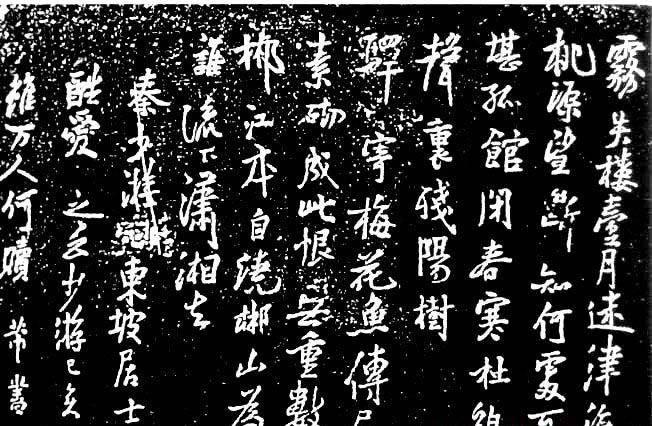 霧失樓臺月迷津渡
桃源望斷知何處可
堪孤館閉春寒杜鵑
聲裏殘陽樹
驛寄梅花魚傳尺
素砌成此恨無重數
郴江本自繞郴山為
誰流下瀟湘去
秦少游東坡居士
酷愛之云少游已矣
雖万人何贖 芾書